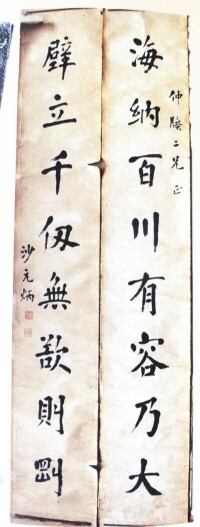 仲二兄正
海納百川有容乃大
壁立千仞無欲則剛
沙元炳